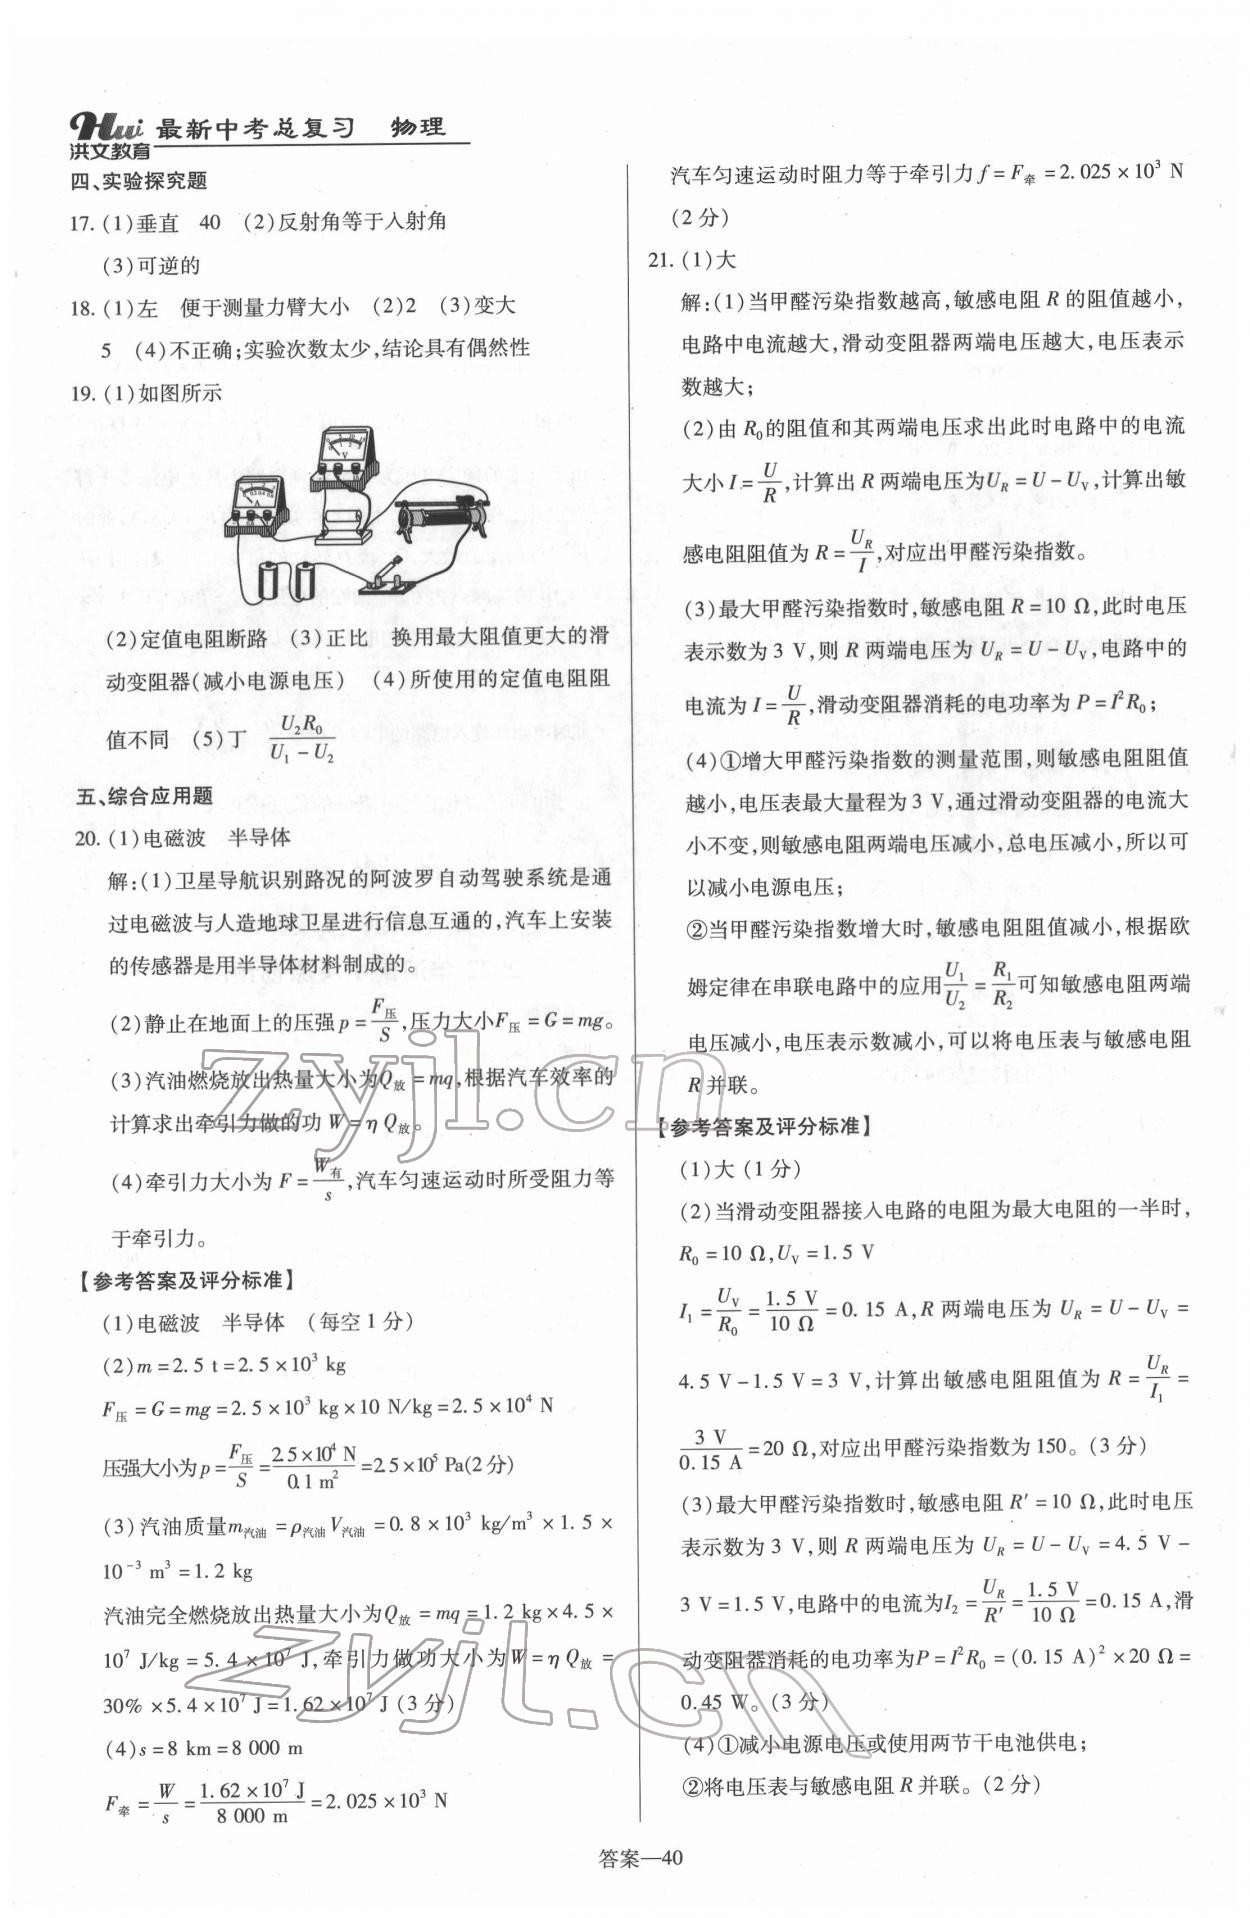 Hwi 最新中考总复习 物理
洪文教育
四、实验探究题
17. (1)垂直 40 (2)反射角等于入射角
(3)可逆的
18. (1)左 便于测量力臂大小 (2)2 (3)变大
5 (4)不正确;实验次数太少,结论具有偶然性
19. (1)如图所示
(2)定值电阻断路 (3)正比 换用最大阻值更大的滑
动变阻器(减小电源电压) (4)所使用的定值电阻阻
值不同 (5)丁 U₂R₀/(U₁-U₂)
五、综合应用题
20. (1)电磁波 半导体
解:(1)卫星导航识别路况的阿波罗自动驾驶系统是通
过电磁波与人造地球卫星进行信息互通的,汽车上安装
的传感器是用半导体材料制成的。
(2)静止在地面上的压强p=F压/S,压力大小F压=G=mg。
(3)汽油燃烧放出热量大小为Q放=mq,根据汽车效率的
计算求出牵引力做的功W=ηQ放。
(4)牵引力大小为F=W有/s,汽车匀速运动时所受阻力等
于牵引力。
【参考答案及评分标准】
(1)电磁波 半导体 (每空1分)
(2)m=2.5 t=2.5×10³ kg
F压=G=mg=2.5×10³ kg×10 N/kg=2.5×10⁴ N
压强大小为p=F压/S=2.5×10⁴ N/0.1 m²=2.5×10⁵ Pa(2分)
(3)汽油质量m汽油=ρ汽油V汽油=0.8×10³ kg/m³×1.5×
10⁻³ m³=1.2 kg
汽油完全燃烧放出热量大小为Q放=mq=1.2 kg×4.5×
10⁷ J/kg=5.4×10⁷ J,牵引力做功大小为W=ηQ放=
30%×5.4×10⁷ J=1.62×10⁷ J(3分)
(4)s=8 km=8 000 m
F牵=W/s=1.62×10⁷ J/8 000 m=2.025×10³ N
汽车匀速运动时阻力等于牵引力f=F牵=2.025×10³ N
(2分)
21. (1)大
解:(1)当甲醛污染指数越高,敏感电阻R的阻值越小,
电路中电流越大,滑动变阻器两端电压越大,电压表示
数越大;
(2)由R₀的阻值和其两端电压求出此时电路中的电流
大小I=U/R,计算出R两端电压为U_R=U-U_V,计算出敏
感电阻阻值为R=U_R/I,对应出甲醛污染指数。
(3)最大甲醛污染指数时,敏感电阻R=10 Ω,此时电压
表示数为3 V,则R两端电压为U_R=U-U_V,电路中的
电流为I=U/R,滑动变阻器消耗的电功率为P=I²R₀;
(4)①增大甲醛污染指数的测量范围,则敏感电阻阻值
越小,电压表最大量程为3 V,通过滑动变阻器的电流大
小不变,则敏感电阻两端电压减小,总电压减小,所以可
以减小电源电压;
②当甲醛污染指数增大时,敏感电阻阻值减小,根据欧
姆定律在串联电路中的应用U₁/U₂=R₁/R₂可知敏感电阻两端
电压减小,电压表示数减小,可以将电压表与敏感电阻
R并联。
【参考答案及评分标准】
(1)大(1分)
(2)当滑动变阻器接入电路的电阻为最大电阻的一半时,
R₀=10 Ω,U_V=1.5 V
I₁=U_V/R₀=1.5 V/10 Ω=0.15 A,R两端电压为U_R=U-U_V=
4.5 V-1.5 V=3 V,计算出敏感电阻阻值为R=U_R/I₁=
3 V/0.15 A=20 Ω,对应出甲醛污染指数为150。(3分)
(3)最大甲醛污染指数时,敏感电阻R′=10 Ω,此时电压
表示数为3 V,则R两端电压为U_R=U-U_V=4.5 V-
3 V=1.5 V,电路中的电流为I₂=U_R/R′=1.5 V/10 Ω=0.15 A,滑
动变阻器消耗的电功率为P=I²R₀=(0.15 A)²×20 Ω=
0.45 W。(3分)
(4)①减小电源电压或使用两节干电池供电;
②将电压表与敏感电阻R并联。(2分)
答案—40
zyjl.cn
zyjl.cn